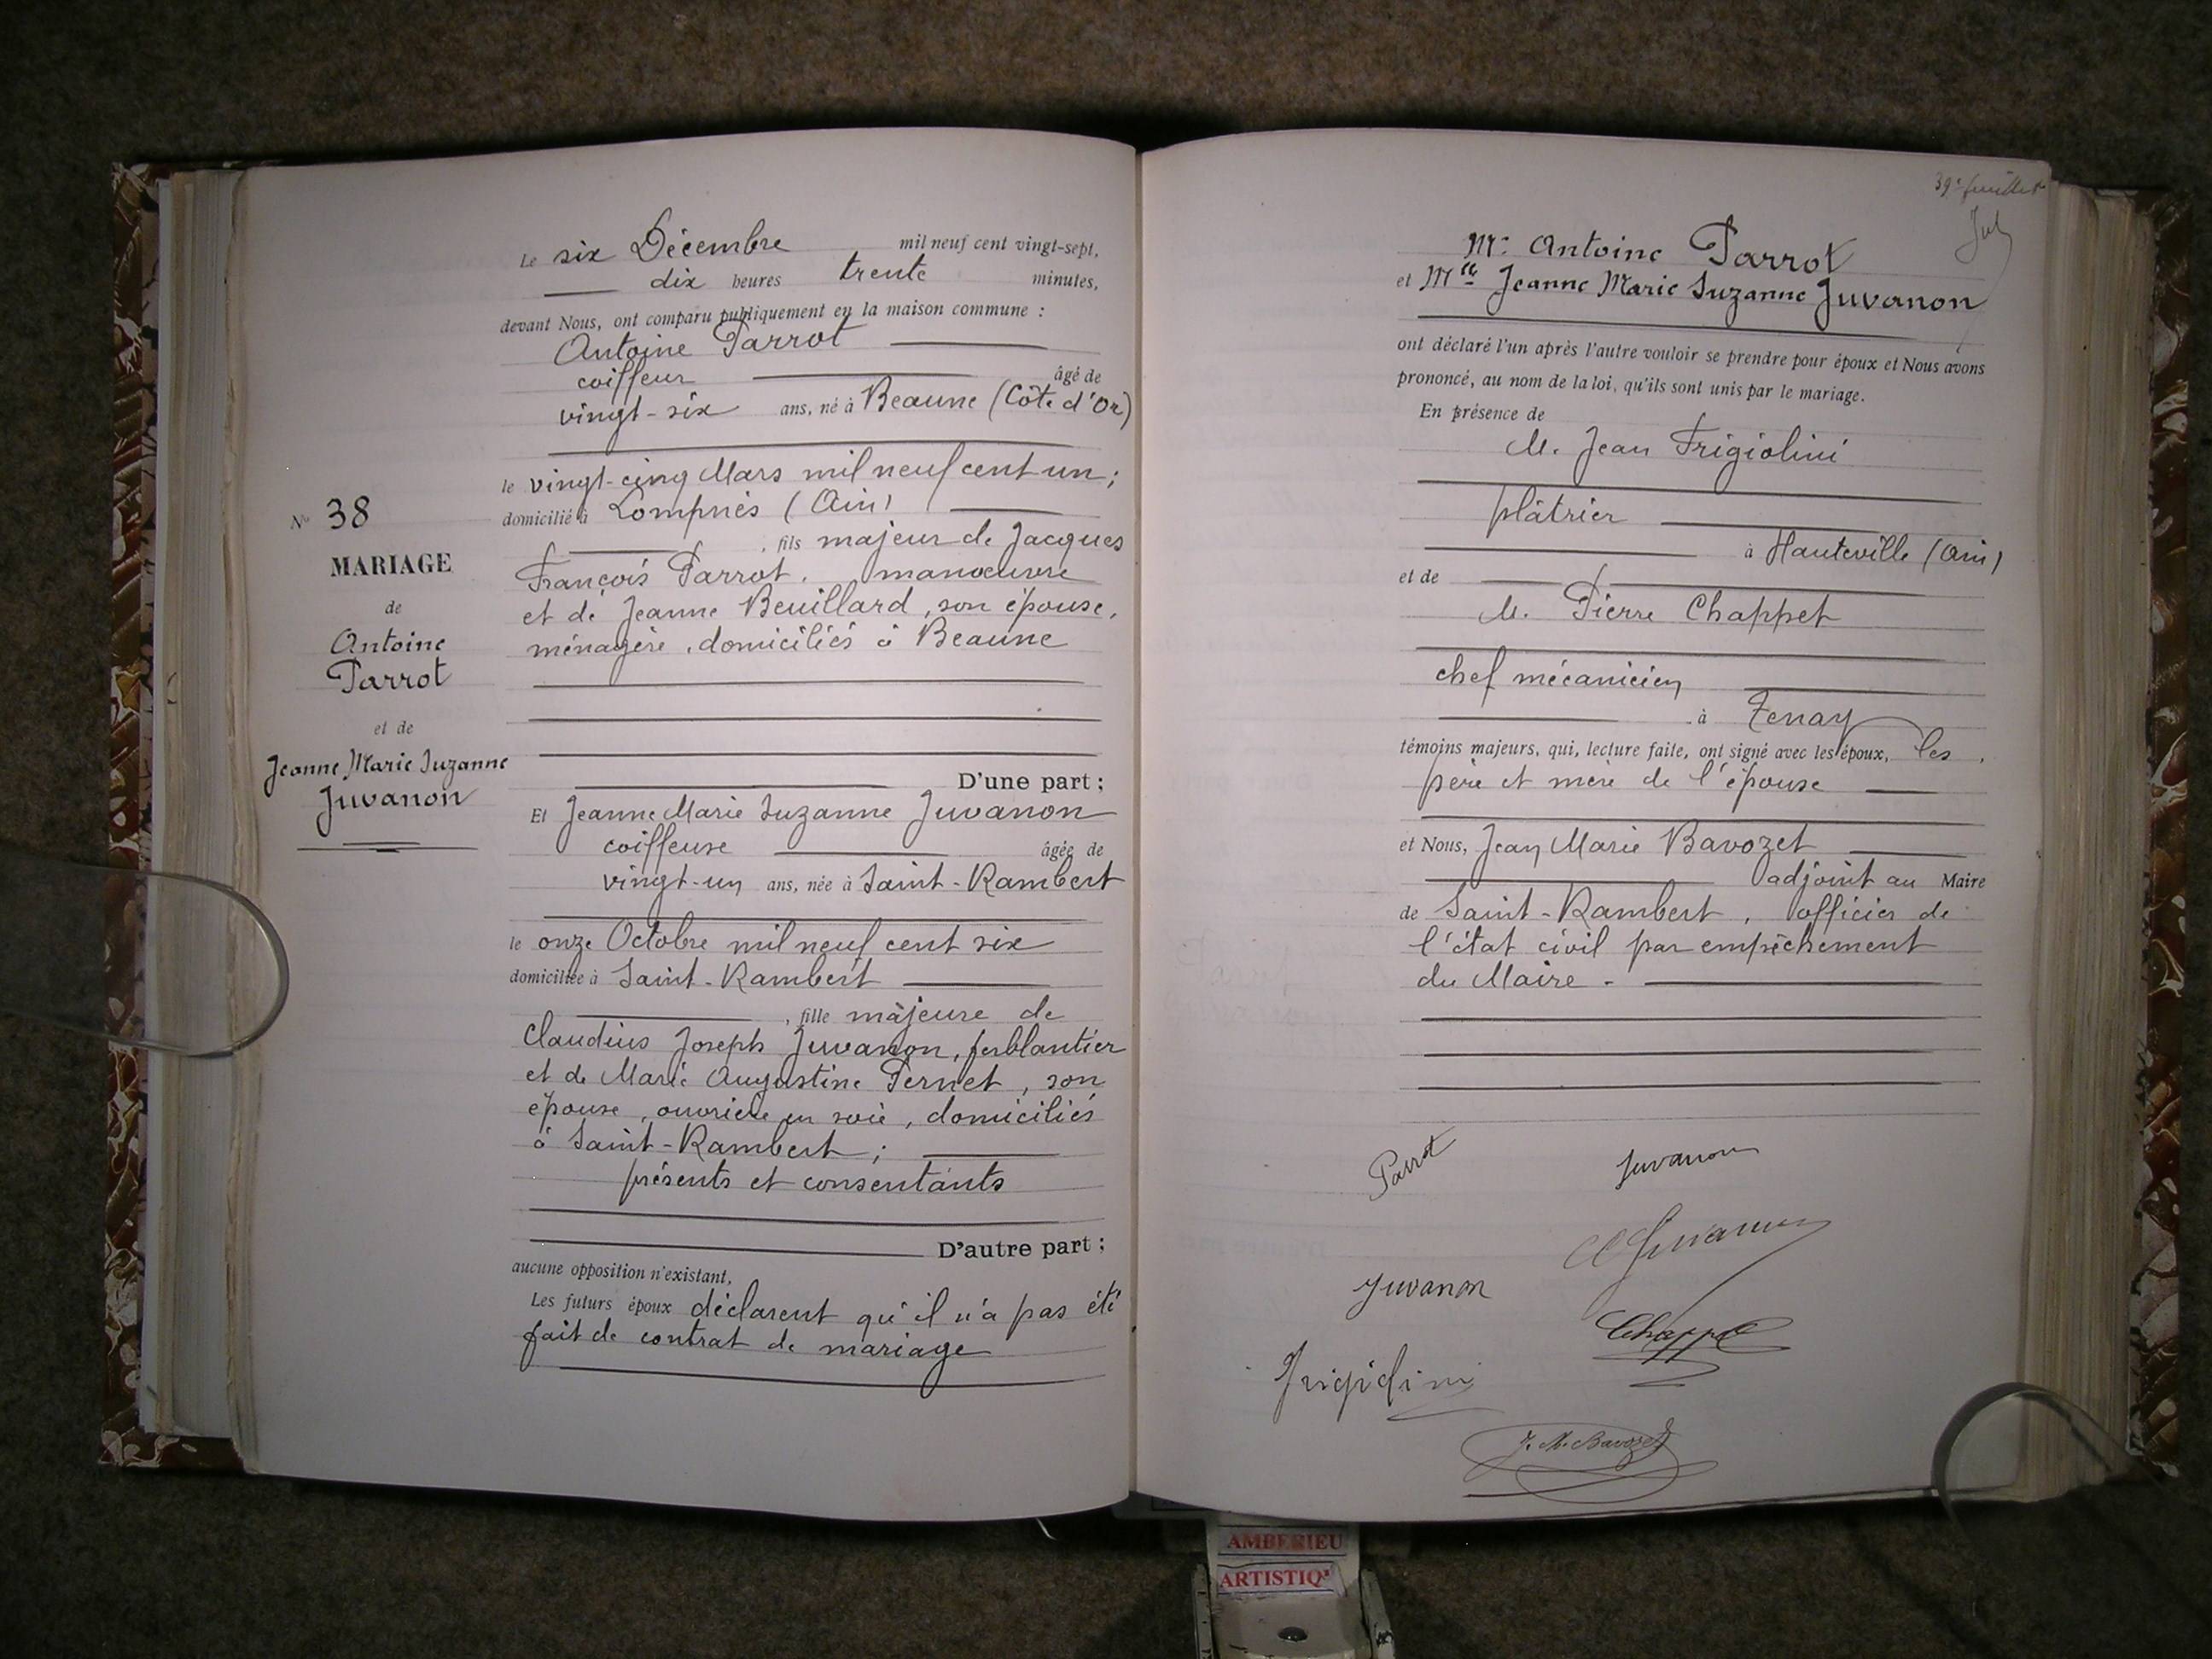 Le six Décembre mil neuf cent vingt-sept,
dix heures trente minutes,
devant Nous, ont comparu publiquement en la maison commune :
Antoine Parrot
coiffeur âgé de
vingt-six ans, né à Beaune (Côte d'Or)
le vingt-cinq Mars mil neuf cent un ;
domicilié à Lompnès (Ain)
, fils majeur de Jacques
François Parrot, manoeuvre
et de Jeanne Beuillard, son épouse,
ménagère, domiciliés à Beaune
D'une part ;
Et Jeanne Marie Suzanne Juvanon
coiffeuse âgée de
vingt-un ans, née à Saint-Rambert
le onze Octobre mil neuf cent six
domiciliée à Saint-Rambert
, fille majeure de
Claudius Joseph Juvanon, ferblantier
et de Marie Augustine Pernet, son
épouse, ouvrière en soie, domiciliés
à Saint-Rambert ;
présents et consentants
D'autre part ;
aucune opposition n'existant,
Les futurs époux déclarent qu'il n'a pas été
fait de contrat de mariage
N° 38
MARIAGE
de
Antoine
Parrot
et de
Jeanne Marie Suzanne
Juvanon
39e feuillet
Mr Antoine Parrot
et Mlle Jeanne Marie Suzanne Juvanon
ont déclaré l'un après l'autre vouloir se prendre pour époux et Nous avons
prononcé, au nom de la loi, qu'ils sont unis par le mariage.
En présence de
M. Jean Frigiolini
plâtrier
à Hauteville (Ain)
et de
M. Pierre Chappet
chef mécanicien
à Tenay
témoins majeurs, qui, lecture faite, ont signé avec les époux, les
père et mère de l'épouse
et Nous, Jean Marie Bavozet
adjoint au Maire
de Saint-Rambert, officier de
l'état civil par empêchement
du Maire -
Parrot
Juvanon
Juvanon
Chappet
Frigiolini
J. M. Bavozet
AMBERIEU
ARTISTIQ